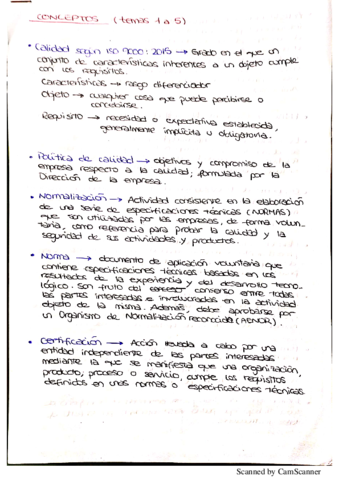 CONCEPTOS (temas 1 a 5)
• Calidad según ISO 9000:2015 → Grado en el que un
conjunto de características inherentes a un objeto cumple
con los requisitos.
Características → rasgo diferenciador
Objeto → cualquier cosa que puede percibirse o
concebirse.
Requisito → necesidad o expectativa establecida,
generalmente implícita u obligatoria.
• Política de calidad → objetivos y compromiso de la
empresa respecto a la calidad; formulada por la
Dirección de la empresa.
• Normalización → Actividad consistente en la elaboración
de una serie de especificaciones técnicas (NORMAS)
que son utilizadas por las empresas, de forma volun-
taria, como referencia para probar la calidad y la
seguridad de sus actividades y productos.
• Norma → documento de aplicación voluntaria que
contiene especificaciones técnicas basadas en los
resultados de la experiencia y del desarrollo tecno-
lógico. Son fruto del consenso entre todas
las partes interesadas e involucradas en la actividad
objeto de la misma. Además, debe aprobarse por
un Organismo de Normalización reconocida (AENOR).
• Certificación → Acción llevada a cabo por una
entidad independiente de las partes interesadas
mediante la que se manifiesta que una organización,
producto, proceso o servicio, cumple los requisitos
definidos en unas normas o especificaciones técnicas.
Scanned by CamScanner